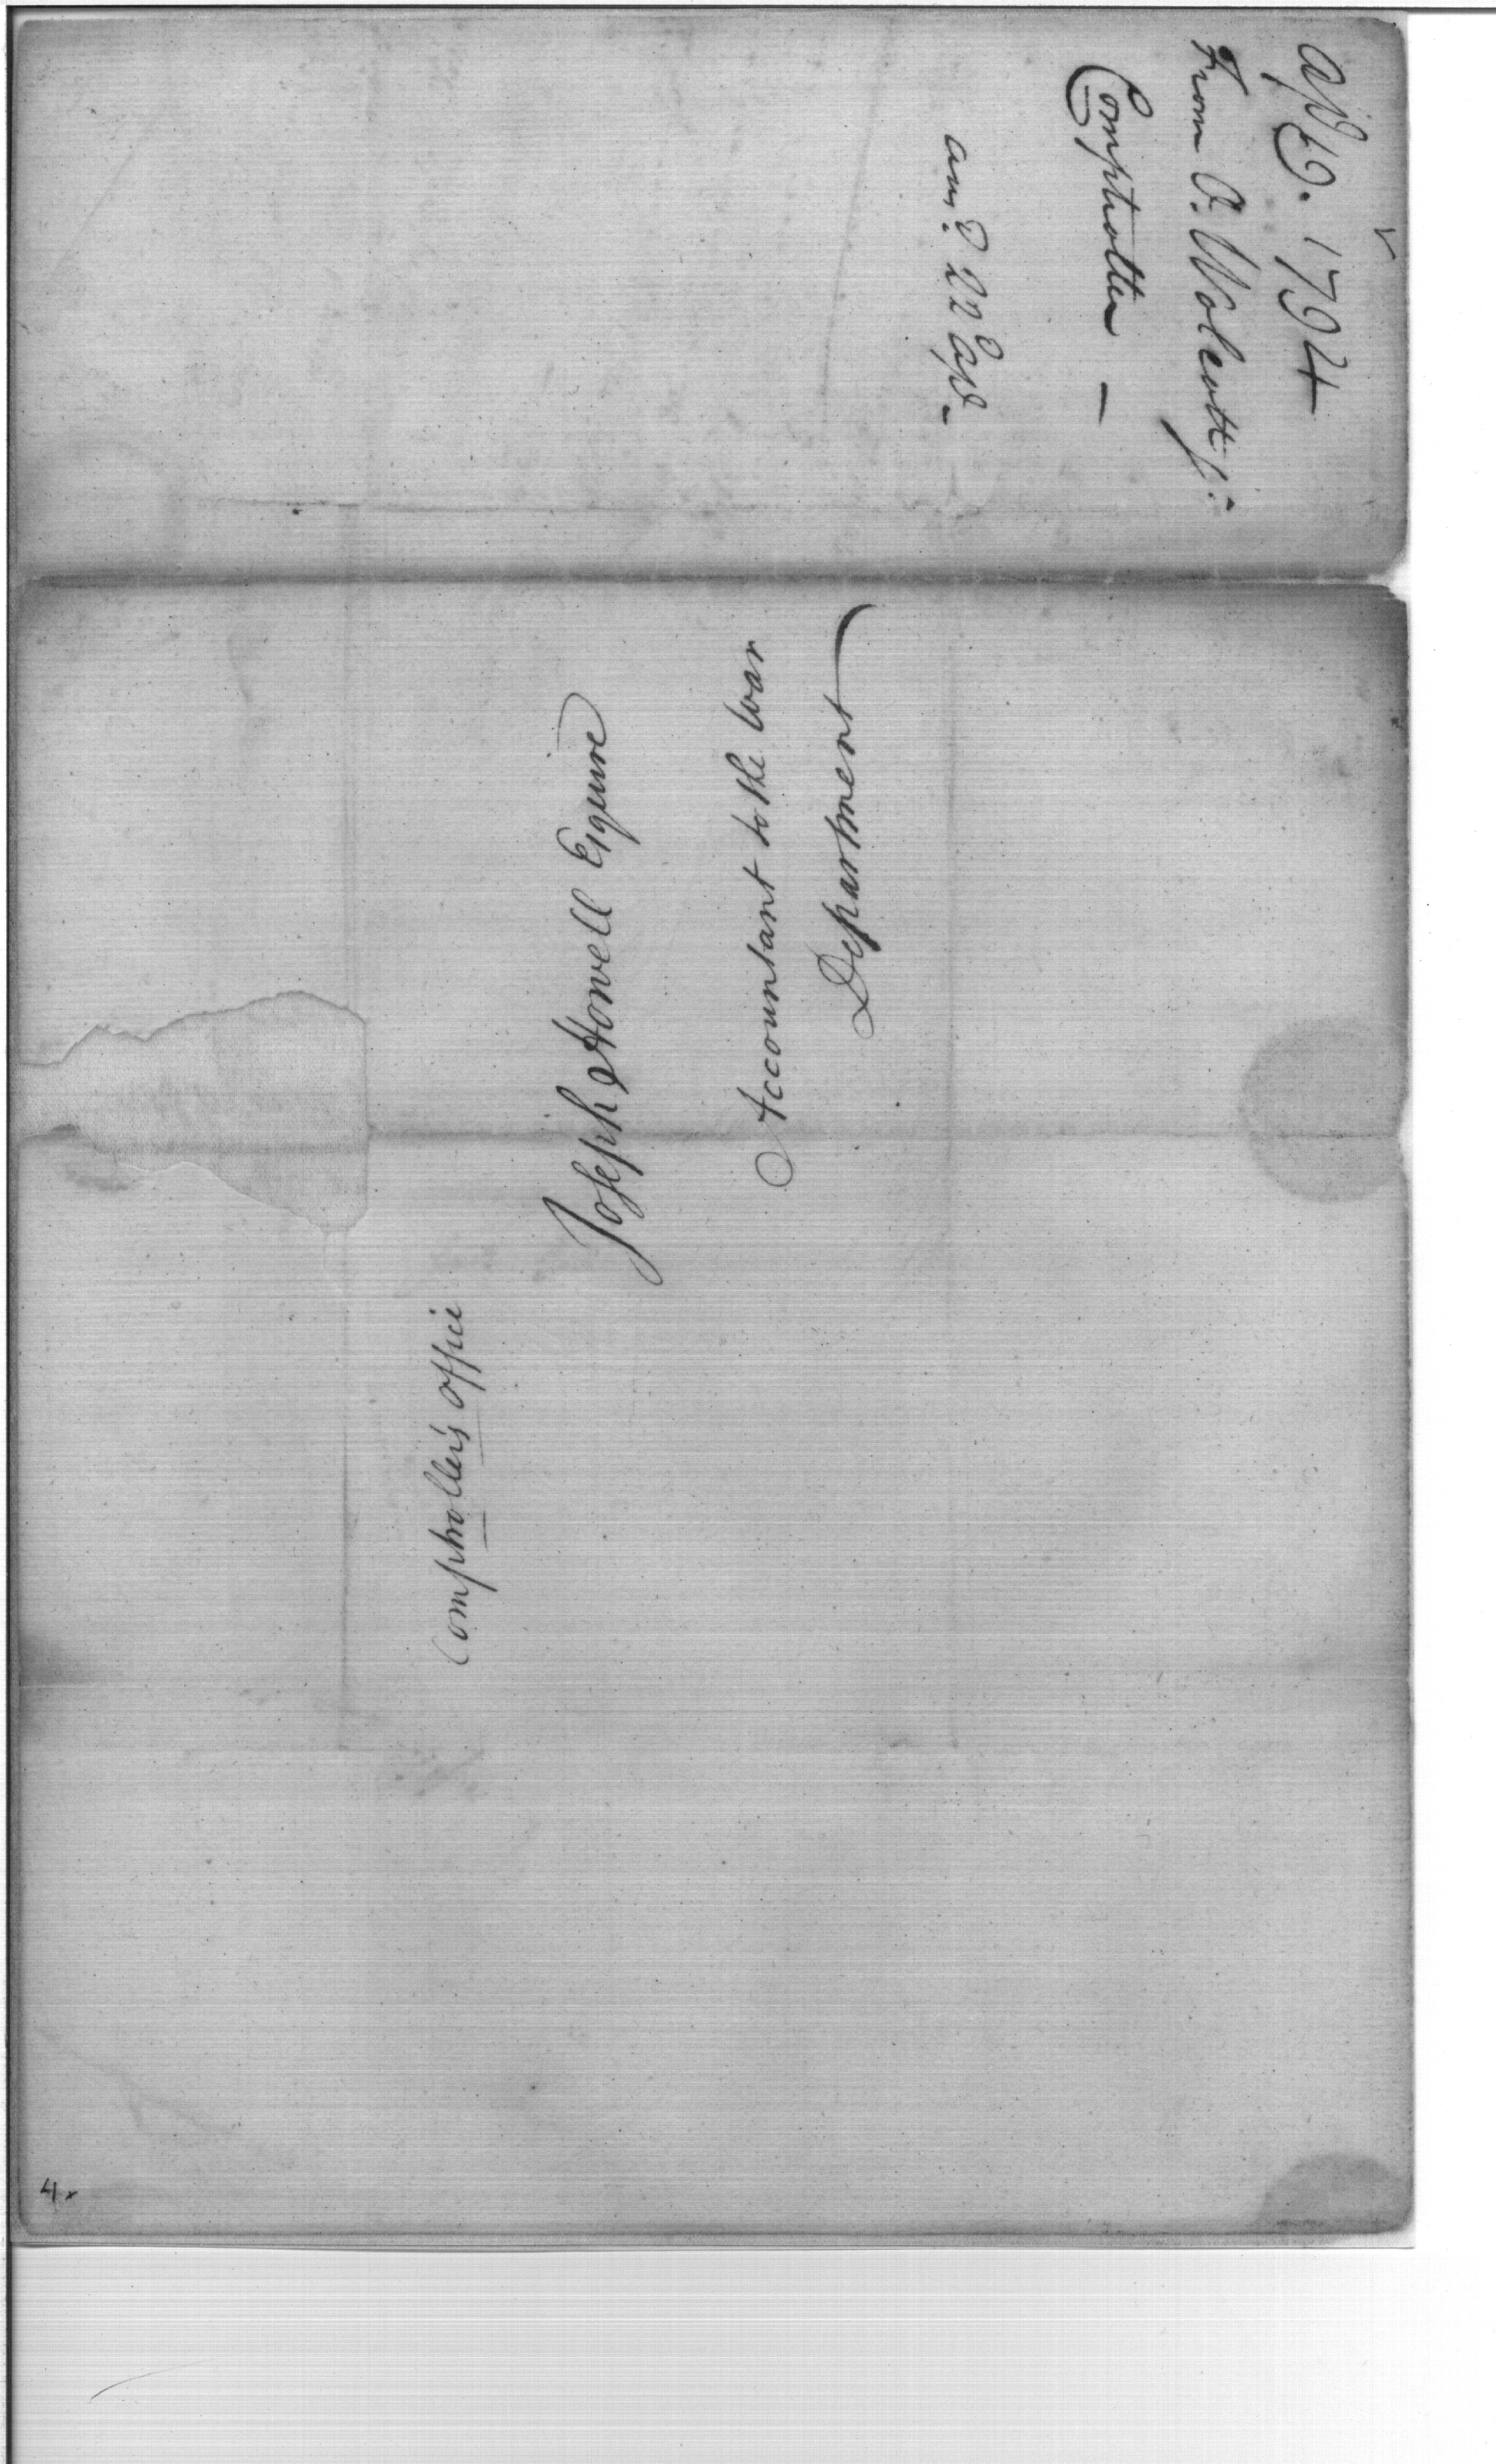 Apl 19. 1794
From O. Wolcott jr:
Comptroller —
ansd. 22d Apl -
Joseph Howell Esquire
Accountant to the War
Department
Comptroller's Office
4.